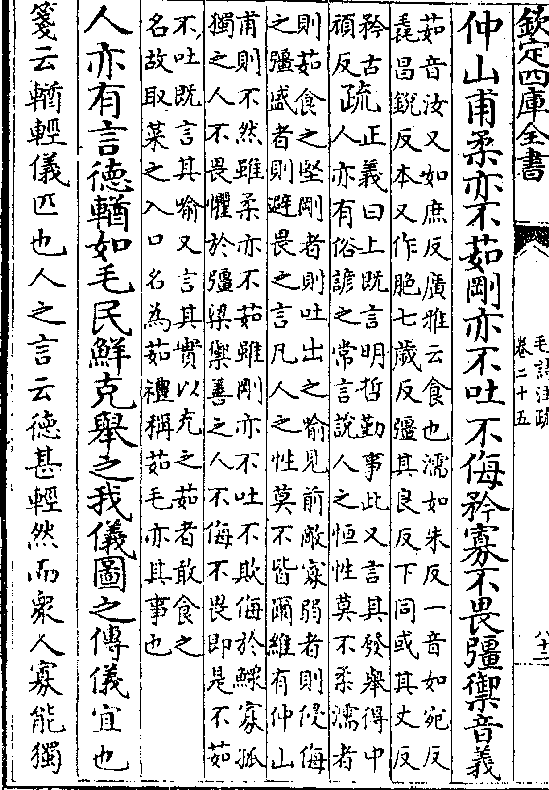 欽定四庫全書
毛詩注疏
卷二十五
八十二
仲山甫柔亦不茹剛亦不吐不侮矜寡不畏彊禦音義
茹音汝又如庶反廣雅云食也濡如朱反一音如宛反
毳昌銳反本又作脆七歲反彊其良反下同或其丈反
矜古
頑反
疏
正義曰上既言明哲勤事此又言其發舉得中
人亦有俗諺之常言說人之恒性莫不柔濡者
則茹食之堅剛者則吐出之喻見前敵寡弱者則侵侮
之彊盛者則避畏之言凡人之性莫不皆爾維有仲山
甫則不然雖柔亦不茹雖剛亦不吐不欺侮於鰥寡孤
獨之人不畏懼於彊梁禦善之人不侮不畏即是不茹
不吐既言其喻又言其實以充之茹者敢食之
名故取菜之入口名為茹禮稱茹毛亦其事也
人亦有言德輶如毛民鮮克舉之我儀圖之傳儀宜也
箋云輶輕儀匹也人之言云德甚輕然而衆人寡能獨